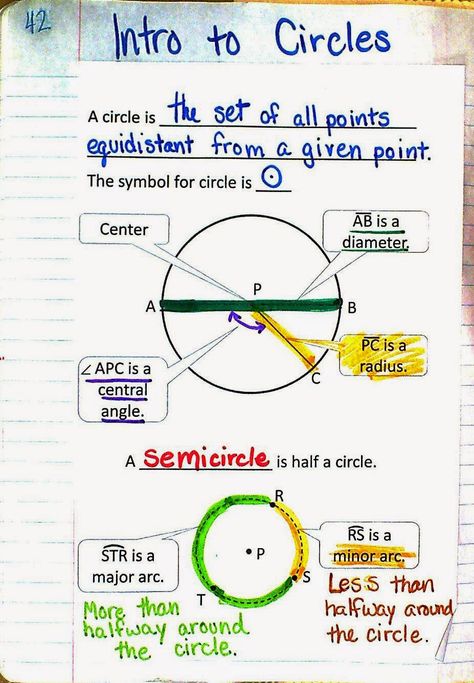 42
Intro to Circles
A circle is the set of all points
equidistant from a given point.
The symbol for circle is ⊙
Center
AB is a
diameter.
P
A
B
PC is a
radius.
C
∠ APC is a
central
angle.
A semicircle is half a circle.
R
RS is a
minor arc.
STR is a
major arc.
P
S
T
Less than
halfway around
the circle.
More than
halfway around
the circle.